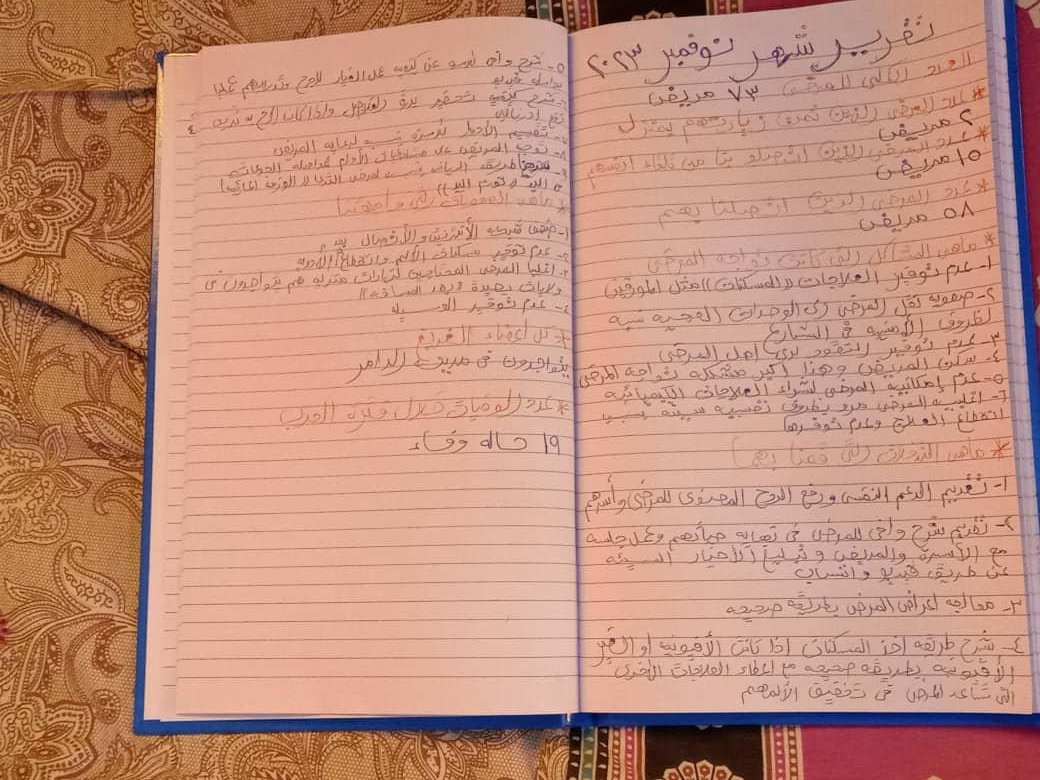 تقرير شهر نوفمبر ٢٠٢٣
العدد الكلي للمرضى ٧٣ مريض
* عدد المرضى الذين تمت زيارتهم بمنزل
٢ مريض
* عدد المرضى الذين اتصلو بنا من تلقاء انفسهم
١٥ مريض
* عدد المرضى الذين اتصلنا بهم
٥٨ مريض
* ماهي المشاكل التي كانت تواجه المرضى
١- عدم توفير العلاجات ((المسكنات)) مثل المورفين
٢- صعوبة نقل المرضى الى الوحدات الصحيه نسبه
لظروف الأمنيه في الشارع
٣- عدم توفير النقود لدى اهل المرضى
٤- سكن المريض وهذا اكبر مشكله تواجه المرضى
٥- عدم إمكانية المرضى لشراء العلاجات الكيميائيه
٦- اغلبيه المرضى مرو بظروف نفسيه سيئة بسبب
انقطاع العلاج وعدم توفرها
* ماهي التدخلات التي قمنا بها
١- تقديم الدعم النفسي ورفع الروح المعنوى للمرضى وأسرهم
٢- تقديم شرح وافى للمرضى في نهايه حياتهم وعمل جلسه
مع الأسرة والمريض وتبليغ الأخبار السيئه
عن طريق فيديو واتساب
٣- معالجه اعراض المرض بطريقه صحيحه
٤- شرح طريقه اخذ المسكنات اذا كانت الأفيونيه او الغير
الأفيونيه بطريقه صحيحه مع اعطاء العلاجات الأخرى
التي تساعد المرضى في تخفيف الألمهم
٥- شرح وافى للأسره عن كيفيه عمل الغيار للجرح وتدريبهم عليها
بواسطه فيديو
٦- شرح كيفيه تحضير بدرة الفلاجل واذا كان الجرح به
٧- تقييم الأدوار للأسرة نسبه لرعايه المريض
٨-
٩- طريقه
((اليد او تورم اليد))
* ماهي المعوقات التي واجهتنا
١- ضعف شبكه الأنترنت والأتصال بهم
٢- عدم توفير مسكنات الألم وانقطاع الأدويه
٣- اغلب المرضى المحتاجين لزيارات منزليه هم يتواجدون في
ولايات بعيدة ((بعد المسافه))
٤- عدم توفير الوسيله
* كل اعضاء الفريق
يتواجدون في مدينة الدامر
* عدد الوفيات خلال فترة الحرب
١٩ حاله وفاء